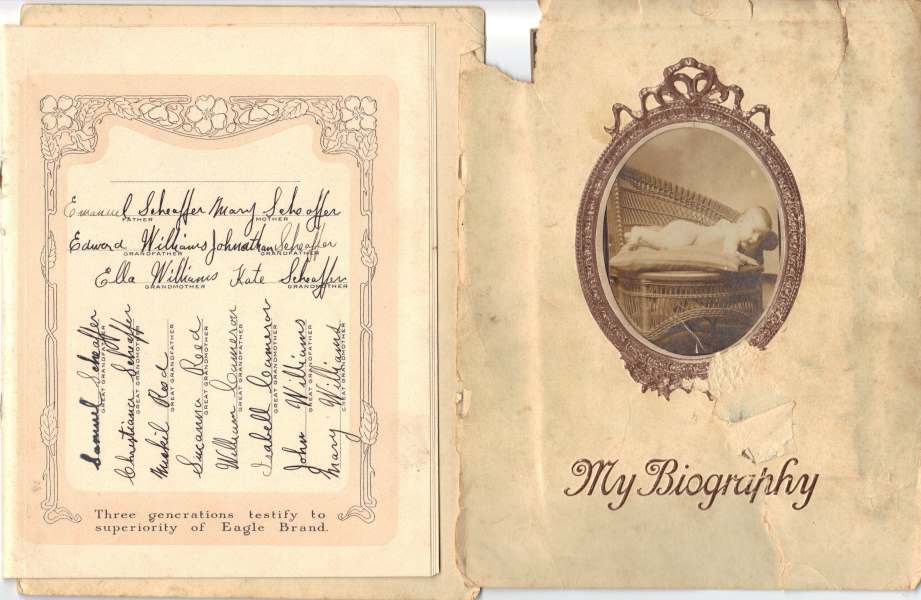 Emanuel Scheaffer Mary Scheaffer
FATHER MOTHER
Edward Williams Johnathan Scheaffer
GRANDFATHER GRANDFATHER
Ella Williams Kate Scheaffer
GRANDMOTHER GRANDMOTHER
Samuel Scheaffer
GREAT GRANDFATHER
Christiana Scheaffer
GREAT GRANDMOTHER
Reed
GREAT GRANDFATHER
Susanna Reed
GREAT GRANDMOTHER
William Cameron
GREAT GRANDFATHER
Isabell Cameron
GREAT GRANDMOTHER
John Williams
GREAT GRANDFATHER
Mary Williams
GREAT GRANDMOTHER
Three generations testify to
superiority of Eagle Brand.
My Biography